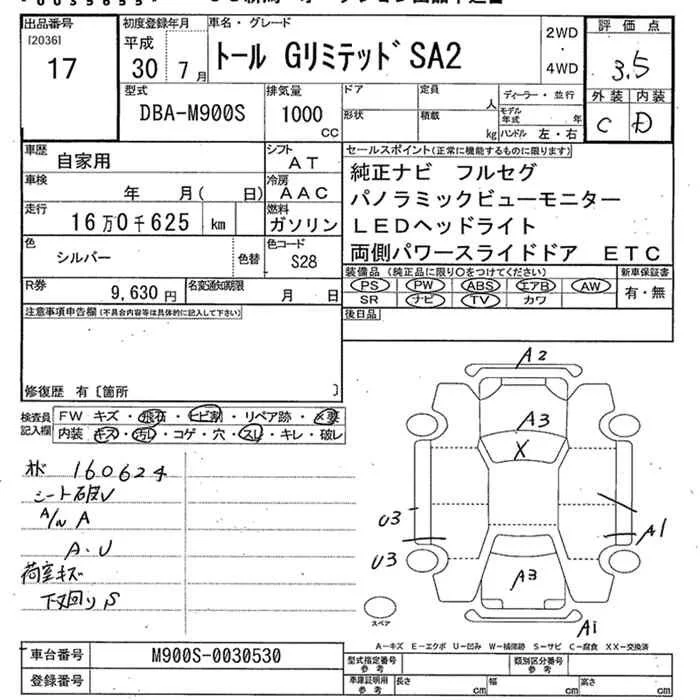 出品番号
[2036]
17
初度登録年月
平成
30 7月
車名・グレード
トール GリミテッドSA2
2WD
・
4WD
評価点
3.5
外装 内装
C D
型式
DBA-M900S
排気量
1000
CC
ドア
定員
人
形状
積載
kg
ディーラー・並行
モデル年式 年
ハンドル 左・右
車歴
自家用
シフト
AT
車検
年 月( 日)
冷房
AAC
走行
16万0千625 km
燃料
ガソリン
色
シルバー
色替
色コード
S28
R券
9,630円
名変通知期限
月 日
セールスポイント(正常に機能するものに限ります)
純正ナビ フルセグ
パノラミックビューモニター
LEDヘッドライト
両側パワースライドドア ETC
装備品(純正品に限り○をつけてください)
PS PW ABS エアB AW
SR ナビ TV カワ
新車保証書
有・無
後日品
注意事項申告欄(不具合内容等は具体的に記入して下さい)
修復歴 有〔箇所 〕
検査員
記入欄
FW キズ・飛石・ヒビ割・リペア跡・X要
内装 キズ・汚れ・コゲ・穴・スレ・キレ・破レ
160624
A/N A
A・U
荷室キズ
下回りS
A2
A3
X
U3
U3
A1
A3
A1
スペア
A-キズ E-エクボ U-凹み W-補修跡 S-サビ C-腐食 XX-交換済
車台番号
M900S-0030530
登録番号
型式指定番号
参考
類別区分番号
参考
車庫証明用
参考
長さ cm
幅 cm
高さ cm